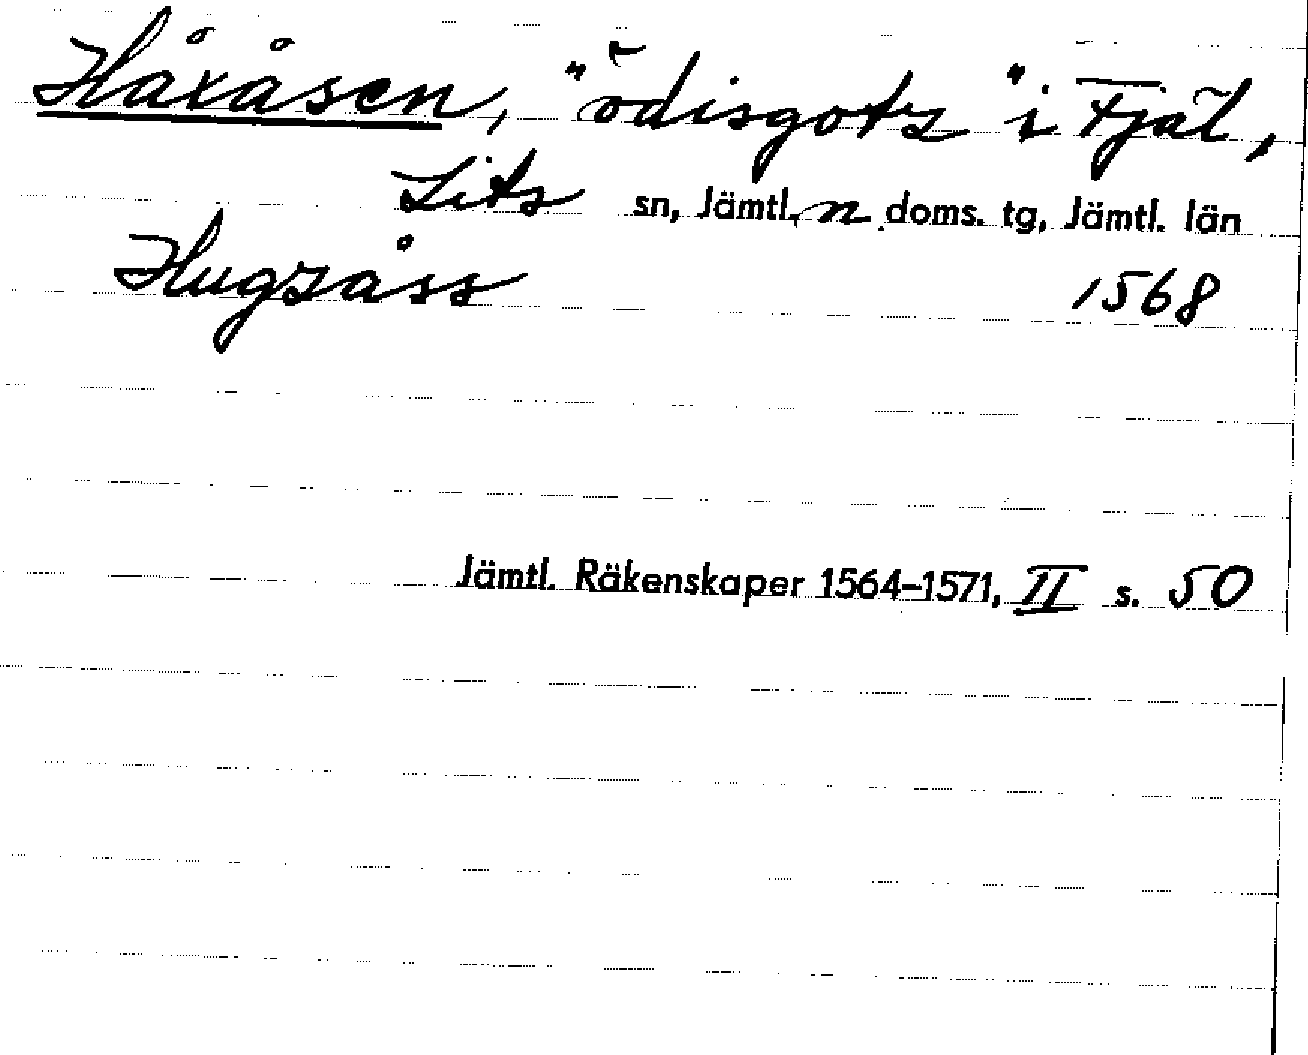 Håxåsen, "ödisgotz" i Fjäl,
Lits sn, Jämtl. n doms. tg, Jämtl. län
Hugzåss 1568
Jämtl. Räkenskaper 1564–1571, II s. 50